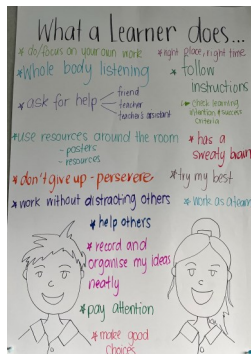 What a Learner does...
* do/focus on your own work
* right place, right time
* Whole body listening
* follow
instructions
↳ check learning
intention & success
criteria
* ask for help
friend
teacher
teacher's assistant
* use resources around the room
- posters
- resources
* has a
sweaty brain
* don't give up - persevere
* try my best
* work without distracting others
* work as a team
* help others
* record and
organise my ideas
neatly
* pay attention
* make good
choices